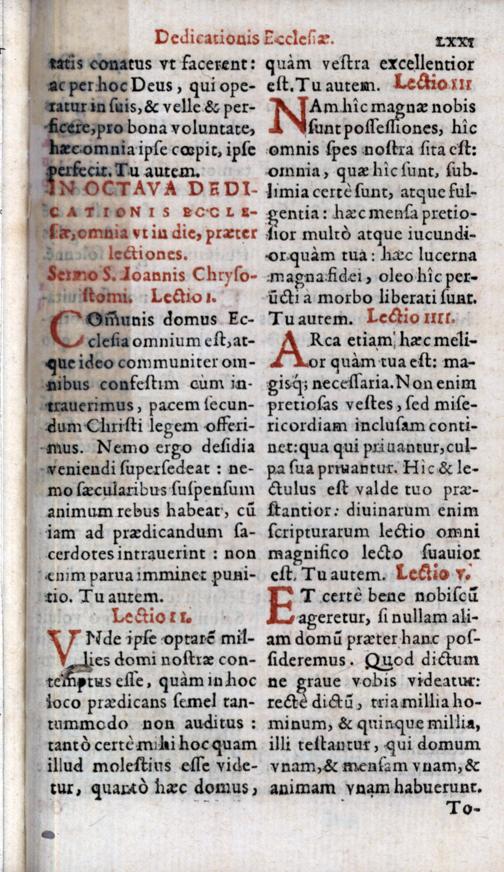 Dedicationis Ecclesiæ. LXXI
tatis conatus vt facerent:
ac per hoc Deus, qui ope-
ratur in suis, & velle & per-
ficere, pro bona voluntate,
hæc omnia ipse cœpit, ipse
perfecit. Tu autem.
IN OCTAVA DEDI-
CATIONIS ECCLE-
siæ, omnia vt in die, præter
lectiones.
Sermo S. Ioannis Chryso-
stomi. Lectio I.
COm̃unis domus Ec-
clesia omnium est, at-
que ideo communiter om-
nibus confestim cùm in-
trauerimus, pacem secun-
dum Christi legem offeri-
mus. Nemo ergo desidia
veniendi supersedeat : ne-
mo sæcularibus suspensum
animum rebus habeat, cũ
iam ad prædicandum sa-
cerdotes intrauerint : non
enim parua imminet puni-
tio. Tu autem.
Lectio II.
VNde ipse optarẽ mil-
lies domi nostræ con-
temptus esse, quàm in hoc
loco prædicans semel tan-
tummodo non auditus :
tantò certè mihi hoc quam
illud molestius esse vide-
tur, quantò hæc domus,
quàm vestra excellentior
est. Tu autem. Lectio III
NAm hîc magnæ nobis
sunt possessiones, hîc
omnis spes nostra sita est:
omnia, quæ hîc sunt, sub-
limia certè sunt, atque ful-
gentia : hæc mensa pretio-
sior multò atque iucundi-
or quàm tua : hæc lucerna
magna fidei, oleo hîc per-
ũcti à morbo liberati sunt.
Tu autem. Lectio IIII.
ARca etiam hæc meli-
or quàm tua est: ma-
gisq; necessaria. Non enim
pretiosas vestes, sed mise-
ricordiam inclusam conti-
net: qua qui priuantur, cul-
pa sua priuantur. Hic & le-
ctulus est valde tuo præ-
stantior: diuinarum enim
scripturarum lectio omni
magnifico lecto suauior
est. Tu autem. Lectio V.
ET certè bene nobiscũ
ageretur, si nullam ali-
am domũ præter hanc pos-
sideremus. Quod dictum
ne graue vobis videatur:
rectè dictũ, tria millia ho-
minum, & quinque millia,
illi testantur, qui domum
vnam, & mensam vnam, &
animam vnam habuerunt.
To-